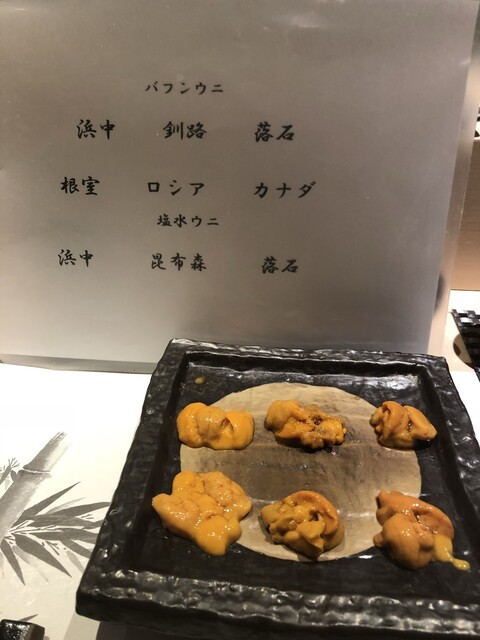 バフンウニ
浜中 釧路 落石
根室 ロシア カナダ
塩水ウニ
浜中 昆布森 落石